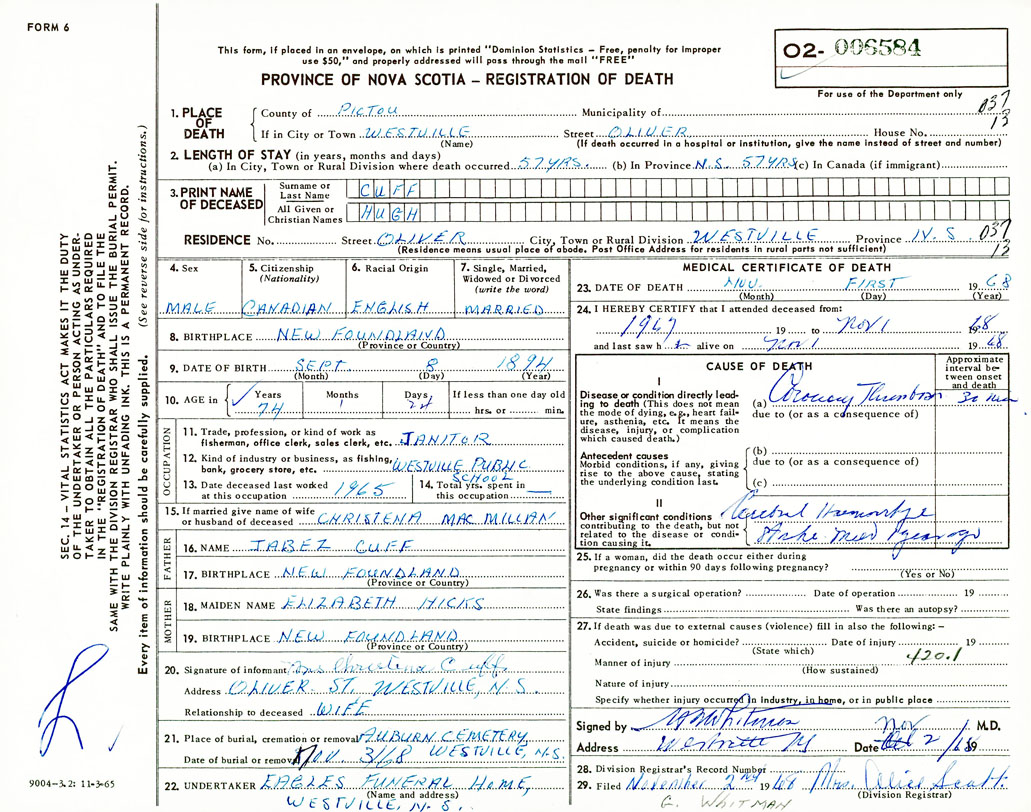 FORM 6
This form, if placed in an envelope, on which is printed "Dominion Statistics – Free, penalty for improper
use $50," and properly addressed will pass through the mail "FREE"
O2- 006584
For use of the Department only
PROVINCE OF NOVA SCOTIA – REGISTRATION OF DEATH
037
13
1. PLACE OF DEATH
County of PICTOU Municipality of
If in City or Town WESTVILLE Street OLIVER House No.
(Name) (If death occurred in a hospital or institution, give the name instead of street and number)
2. LENGTH OF STAY (in years, months and days)
(a) In City, Town or Rural Division where death occurred 57 YRS. (b) In Province N.S. 57 YRS (c) In Canada (if immigrant)
3. PRINT NAME OF DECEASED
Surname or Last Name CUFF
All Given or Christian Names HUGH
RESIDENCE No. Street OLIVER City, Town or Rural Division WESTVILLE Province N.S 037
(Residence means usual place of abode. Post Office Address for residents in rural parts not sufficient) 13
4. Sex MALE
5. Citizenship (Nationality) CANADIAN
6. Racial Origin ENGLISH
7. Single, Married, Widowed or Divorced (write the word) MARRIED
8. BIRTHPLACE NEW FOUNDLAND
(Province or Country)
9. DATE OF BIRTH SEPT 8 1894
(Month) (Day) (Year)
10. AGE in Years 74 Months 1 Days 24 If less than one day old
hrs. or min.
OCCUPATION
11. Trade, profession, or kind of work as
fisherman, office clerk, sales clerk, etc. JANITOR
12. Kind of industry or business, as fishing,
bank, grocery store, etc. WESTVILLE PUBLIC SCHOOL
13. Date deceased last worked
at this occupation 1965
14. Total yrs. spent in
this occupation —
15. If married give name of wife
or husband of deceased CHRISTENA MAC MILLAN
FATHER
16. NAME JABEZ CUFF
17. BIRTHPLACE NEW FOUNDLAND
(Province or Country)
MOTHER
18. MAIDEN NAME ELIZABETH HICKS
19. BIRTHPLACE NEW FOUNDLAND
(Province or Country)
20. Signature of informant Mrs Christina Cuff
Address OLIVER ST. WESTVILLE, N.S.
Relationship to deceased WIFE
21. Place of burial, cremation or removal AUBURN CEMETERY
WESTVILLE, N.S.
Date of burial or removal Nov. 3/68
22. UNDERTAKER EAGLES FUNERAL HOME,
(Name and address)
WESTVILLE, N.S.
MEDICAL CERTIFICATE OF DEATH
23. DATE OF DEATH NOV. FIRST 1968
(Month) (Day) (Year)
24. I HEREBY CERTIFY that I attended deceased from:
1967 19 to Nov 1 1968
and last saw h alive on Nov 1 1968
CAUSE OF DEATH
Approximate interval between onset and death
I
Disease or condition directly leading to death (This does not mean
the mode of dying, e.g., heart failure, asthenia, etc. It means the
disease, injury, or complication
which caused death.)
(a) Coronary Thrombosis 30 min
due to (or as a consequence of)
Antecedent causes
Morbid conditions, if any, giving
rise to the above cause, stating
the underlying condition last.
(b)
due to (or as a consequence of)
(c)
II
Other significant conditions
contributing to the death, but not
related to the disease or condition causing it.
Cerebral Hemorrhage
ago
25. If a woman, did the death occur either during
pregnancy or within 90 days following pregnancy?
(Yes or No)
26. Was there a surgical operation? Date of operation 19
State findings Was there an autopsy?
27. If death was due to external causes (violence) fill in also the following: –
Accident, suicide or homicide? Date of injury 19
(State which)
Manner of injury 420.1
(How sustained)
Nature of injury
Specify whether injury occurred in Industry, in home, or in public place
Signed by Whitman M.D.
Address Westville NS Date Nov 2/68 19
28. Division Registrar's Record Number
29. Filed November 2nd 1968 Mrs. Alice Scott.
(Division Registrar)
G. WHITMAN
SEC. 14 – VITAL STATISTICS ACT MAKES IT THE DUTY
OF THE UNDERTAKER OR PERSON ACTING AS UNDER-
TAKER TO OBTAIN ALL THE PARTICULARS REQUIRED
IN THE "REGISTRATION OF DEATH" AND TO FILE THE
SAME WITH THE DIVISION REGISTRAR WHO SHALL ISSUE THE BURIAL PERMIT.
WRITE PLAINLY WITH UNFADING INK. THIS IS A PERMANENT RECORD.
Every item of information should be carefully supplied. (See reverse side for instructions.)
9004–3.2: 11-3-65